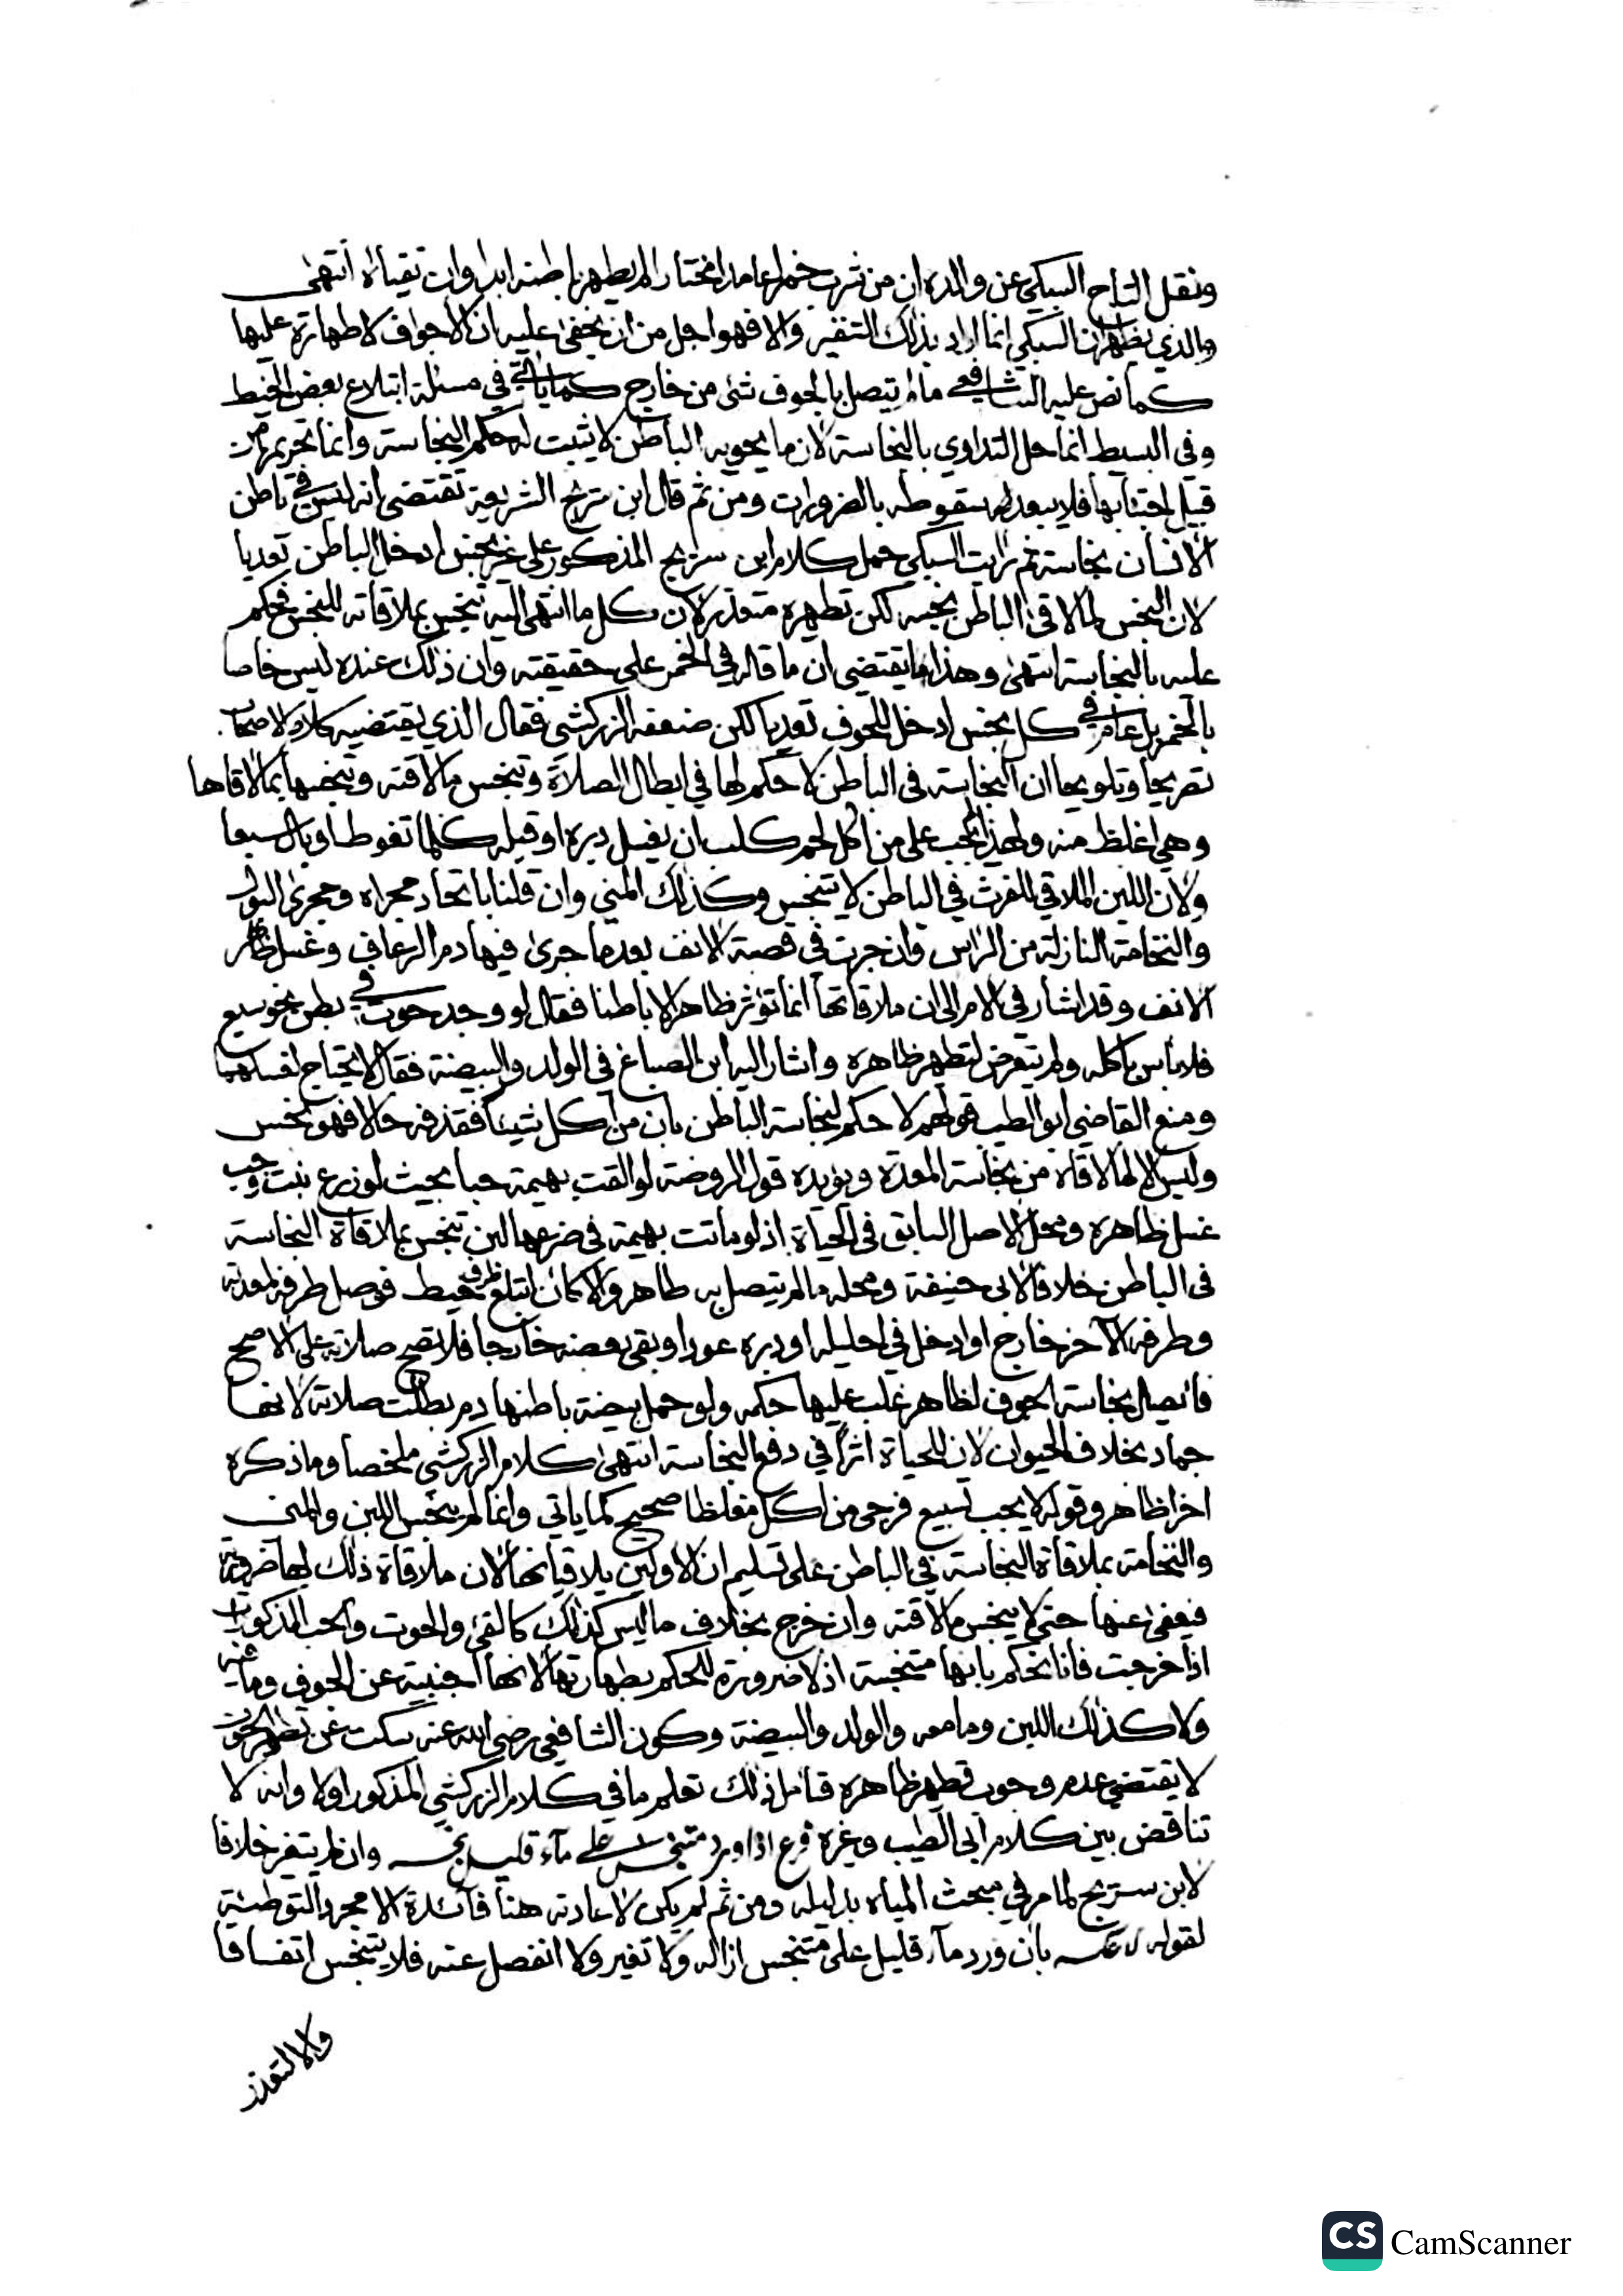 ونقل التاج السبكي عن والده ان من شرب خمرا عامدا مختارا لم يطهر باطنه ابدا وان تقيأه انتهى
والذي يظهر ان السبكي انما اراد بذلك التنفير والا فهو اجل من ان يخفى عليه ان الاجواف لا طهارة عليها
كما نص عليه الشافعي ما لم يتصل بالجوف شئ من خارج كما ياتي في مسئلة ابتلاع بعض الخيط
وفي البسيط انما حل التداوي بالنجاسة لان ما يحويه الباطن لا يثبت له حكم النجاسة وانما تحريمها من
قبيل اجتنابها فلا يبعد سقوطه بالضرورات ومن ثم قال ابن سريج الشريعة تقتضي انه ليس في باطن
الانسان نجاسة ثم رايت السبكي حمل كلام ابن سريج المذكور على غير نجس ادخل الباطن تعديا
لان النجس لما لاقى الباطن نجسه لكن تطهيره متعذر لان كل ما انتهى اليه تنجس بملاقاته للنجس فحكم
عليه بالنجاسة انتهى وهذا ما يقتضي ان ما قاله في الخمر على حقيقته وان ذلك عنده ليس خاصا
بالخمر بل عام في كل نجس ادخل للجوف تعديا لكن ضعفه الزركشي فقال الذي يقتضيه كلام الاصحاب
تصريحا وتلويحا ان النجاسة في الباطن لا حكم لها في ابطال الصلاة وتنجس ما لاقته وتنجسها بما لاقاها
وهي اغلظ منه ولهذا لم يجب على من اكل لحم كلب ان يغسل دبره او قبله كلما تغوط او بال سبعا
ولان اللبن الملاقي للفرث في الباطن لا يتنجس وكذلك المني وان قلنا باتحاد مجراه ومجرى البول
والنخامة النازلة من الراس وان جرت في قصبة الانف بعد ما جرى فيها دم الرعاف وغسل ظاهر
الانف وقد اشار في الام الى ان ملاقاتها انما تؤثر ظاهرا لا باطنا فقال لو وجد حوت في بطن نحو سبع
فلا باس باكله ولم يتعرض لتطهير ظاهره واشار اليه ابن الصباغ في الولد والبيضة فقال لا يحتاج لغسلهما
ومنع القاضي ابو الطيب قولهم لا حكم لنجاسة الباطن بان من اكل شيئا فقذفه حالا فهو نجس
وليس الا لما لاقاه من نجاسة المعدة ويؤيده قول الروضة لو القت بهيمة حبا بحيث لو زرع نبت وجب
غسل ظاهره ومحل الاصل السابق في الحياة اذ لو ماتت بهيمة في ضرعها لبن تنجس بملاقاة النجاسة
في الباطن خلافا لابي حنيفة ومحله ما لم يتصل به طاهر والا كان ابتلع طرف خيط فوصل طرفه لمعدته
وطرفه الاخر خارج او ادخل في احليله او دبره عودا وبقي بعضه خارجا فلا تصح صلاته على الاصح
فاتصال نجاسة الجوف لظاهر غلب عليها حكمه ولو حمل بيضة باطنها دم بطلت صلاته لانها
جماد بخلاف الحيوان لان للحياة اثرا في دفع النجاسة انتهى كلام الزركشي ملخصا وما ذكره
اخرا ظاهر وقوله لا يجب تسبيع فرجي من اكل مغلظا صحيح كما ياتي وانما لم ينجس اللبن والمني
والنخامة بملاقاة النجاسة في الباطن على تسليم ان الاولين يلاقيانها لان ملاقاة ذلك لها ضرورية
فيعفى عنها حتى لا ينجس ما لاقته وان خرج بخلاف ما ليس كذلك كالقئ والحوت والحب المذكورات
اذا خرجت فانا نحكم بانها متنجسة اذ لا ضرورة للحكم بطهارتها لانها اجنبية عن الجوف وما فيه
ولا كذلك اللبن وما معه والولد والبيضة وكون الشافعي رضي الله عنه سكت عن تطهير الحوت
لا يقتضي عدم وجوب تطهير ظاهره فتامل ذلك تعلم ما في كلام الزركشي المذكور اولا وانه لا
تناقض بين كلام ابي الطيب وغيره فرع اذا ورد متنجس على ماء قليل نجسه وان لم يتغير خلافا
لابن سريج لما مر في مبحث المياه بدليله ومن ثم لم يكن لاعادته هنا فائدة الا مجرد التوطئة
لقوله لا عكسه بان ورد ماء قليل على متنجس ازاله ولا تغير ولا انفصل عنه فلا يتنجس اتفاقا
ولا لتعذر
CS CamScanner